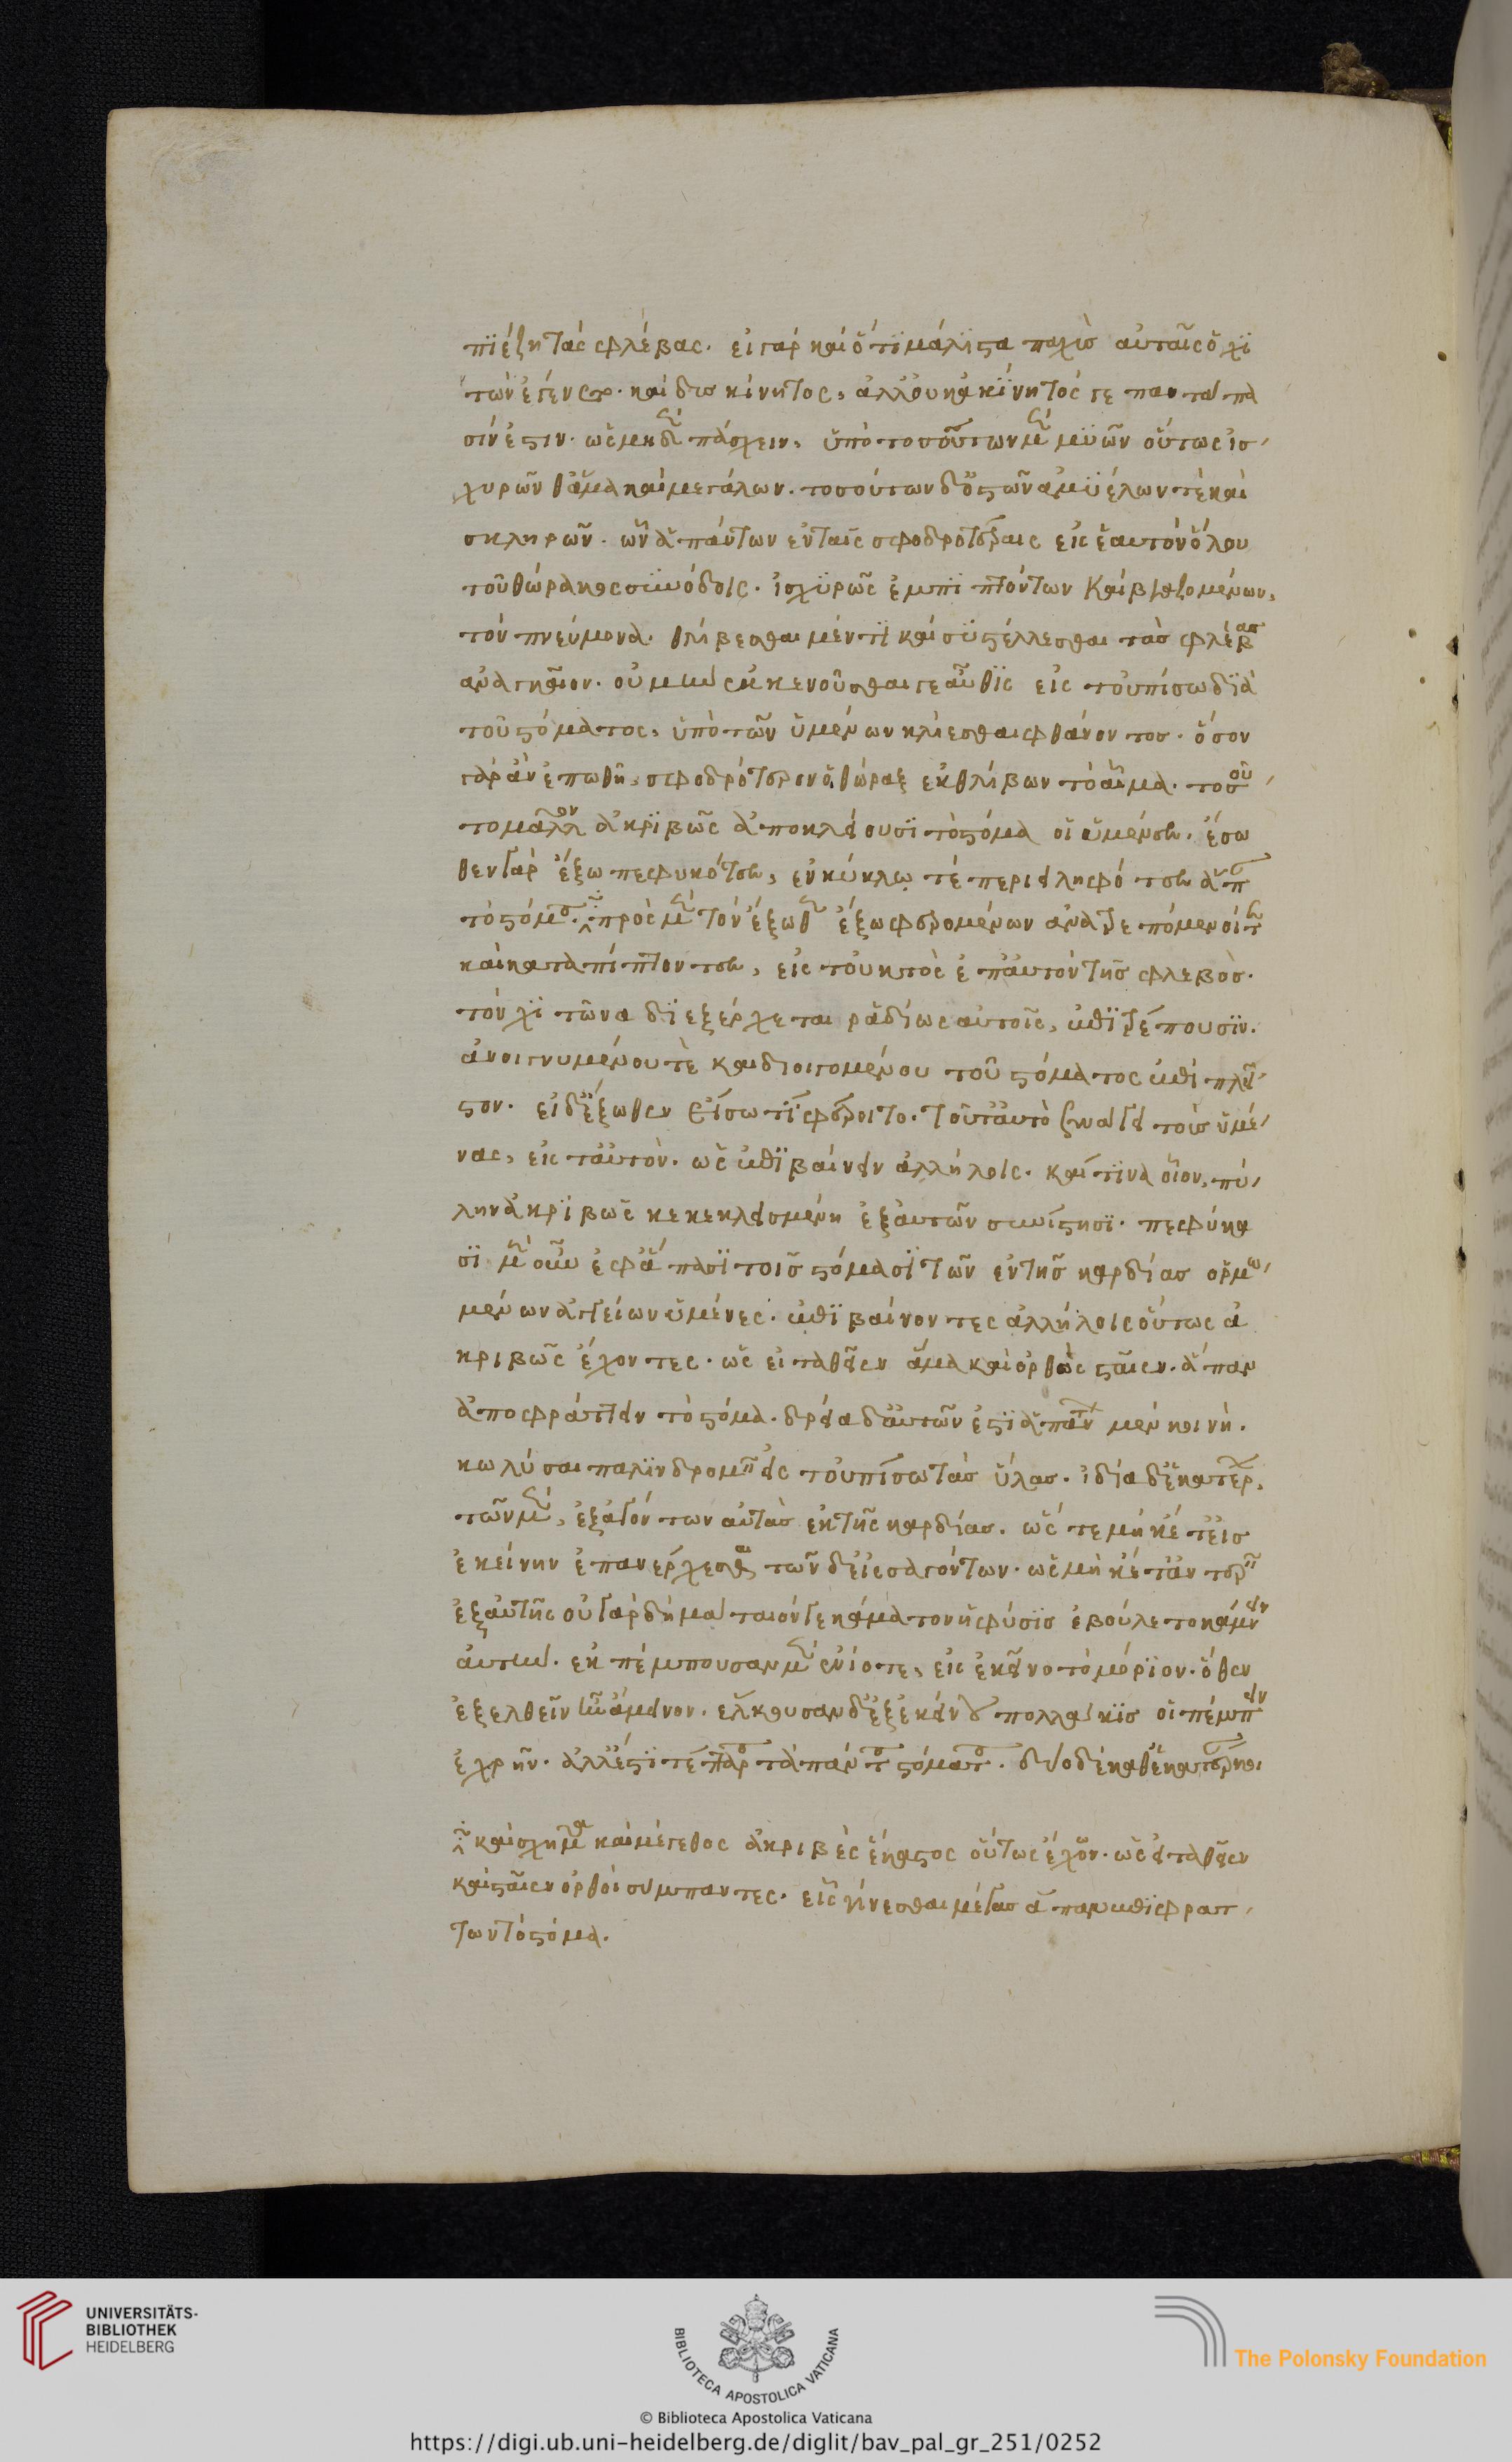 πϊέζη τὰς φλέβας. εἰ γὰρ καὶ ὅτϊ μάλϊστα παχὺσ αὐταῖς ὁ χϊ
τὼν ἐγένετο. καὶ δυσκίνητος, ἀλλ' οὐκ ἀκϊνητός γε παντά πα
σίν ἐστιν. ὡς μηδὲν πάσχειν, ὑπὸ τοσούτων μὲν μϋῶν οὕτως ἰσ
χυρῶν θ' ἅμα καὶ μεγάλων. τοσούτων δ' ὀστῶν ἀμϋέλων τὲ καὶ
σκληρῶν. ὧν ἁπάντων ἐν ταῖς σφοδροτέραις εἰς ἑαυτὸν ὅλου
τοῦ θώρακος συνόδοις. ἰσχϋρῶς ἐμπϊπτόντων καὶ βιαζομένων,
τὸν πνεύμονα. θλίβεσθαι μέν τϊ καὶ συστέλλεσθαι τὰσ φλέβας
ἀναγκαῖον. οὐ μὴν ἐκκενοῦσθαι γε αὖθϊς εἰς τοὐπίσω δϊὰ
τοῦ στόματος, ὑπὸ τῶν ὑμένων κλείεσθαι φθάνοντοσ. ὅσον
γὰρ ἂν ἐπωθῆ, σφοδρότερον ὁ θώραξ ἐκθλίβων τὸ αἷμα. τοσοῦ
το μᾶλλον ἀκρϊβῶς ἀποκλείουσϊ τὸ στόμα οἱ ὑμένες. ἔσω
θεν γὰρ ἔξω πεφυκότες, ἐν κύκλῳ τέ περιειληφότες ἅπαν
τὸ στόμα. πρὸς μὲν τὸν ἔξωθεν ἔξω φερομένων ἀνατρεπόμενοί τε
καὶ καταπίπτοντες, εἰς τοὐκτὸς ἐπ' αὐτὸν τῆσ φλεβὸσ.
τὸν χϊτῶνα δϊεξέρχεται ῥαδίως αὐτοῖς, ἐπϊτρέπουσϊν.
ἀνοιγνυμένου τὲ καὶ διοιγομένου τοῦ στόματος ἐπὶ πλεῖ
στον. εἰ δ' ἔξωθεν εἴσω τϊ φέροιτο. τοῦτ' αὐτὸ ξυνάγει τοὺσ ὑμέ
νας, εἰς ταὐτὸν. ὡς ἐπϊβαίνειν ἀλλήλοις. καί τϊνα οἷον, πύ
λην ἀκρϊβῶς κεκλεισμένη ἐξ αὐτῶν συνίστησϊ. πεφύκα
σϊ μὲν οὖν ἐφ' ἅπασϊ τοῖσ στόμασϊ τῶν ἐν τῆσ καρδίασ ὁρμω
μένων ἀγγείων ὑμένες. ἐπϊβαίνοντες ἀλλήλοις οὕτως ἀ
κριβῶς ἔχοντες. ὡς εἰ ταθεῖεν ἅμα καὶ ὀρθῶς σταῖεν. ἅπαν
ἀποφράττειν τὸ στόμα. χρεία δ' αὐτῶν ἐστϊ ἁπάντων μὲν κοινὴ.
κωλύσαι παλϊνδρομεῖν εἰς τοὐπίσω τὰσ ὕλασ. ἰδία δ' ἑκατέρων,
τῶν μὲν, ἐξαγόντων αὐτὰσ ἐκ τῆς καρδίασ. ὡς τε μὴ κέτ' εἰσ
ἐκείνην ἐπανέρχεσθαι τῶν δ' εἰσαγόντων. ὡς μὴ κέτ' ἂν
ἐξ αὐτῆς οὐ γὰρ δὴ μάταιόν γε κάματον ἡ φύσϊσ ἐβούλετο κάμνειν
αὐτὴν. ἐκπέμπουσαν μὲν ἐνίοτε, εἰς ἐκεῖνο τὸ μόρϊον. ὅθεν
ἐξελθεῖν ἦν ἄμεινον. ἕλκουσαν δ' ἐξ ἐκείνου πολλάκϊσ οἷ πέμπειν
ἐχρῆν. ἀλλ' ἐστϊ τέτταρα τὰ πάντα στόματα. δύο δέ καθ' ἑκατέραν κοι

καὶ σχῆμα καὶ μέγεθος ἀκριβὲς ἕκαστος οὕτως ἔχον. ὡς εἰ ταθεῖεν
καὶ σταῖεν ὀρθοὶ σύμπαντες. εἷς γίνεσθαι μέγασ ἅπαν ἐπϊφρατ
των τὸ στόμα.

UNIVERSITÄTS-
BIBLIOTHEK
HEIDELBERG
BIBLIOTECA APOSTOLICA VATICANA
The Polonsky Foundation
© Biblioteca Apostolica Vaticana
https://digi.ub.uni-heidelberg.de/diglit/bav_pal_gr_251/0252